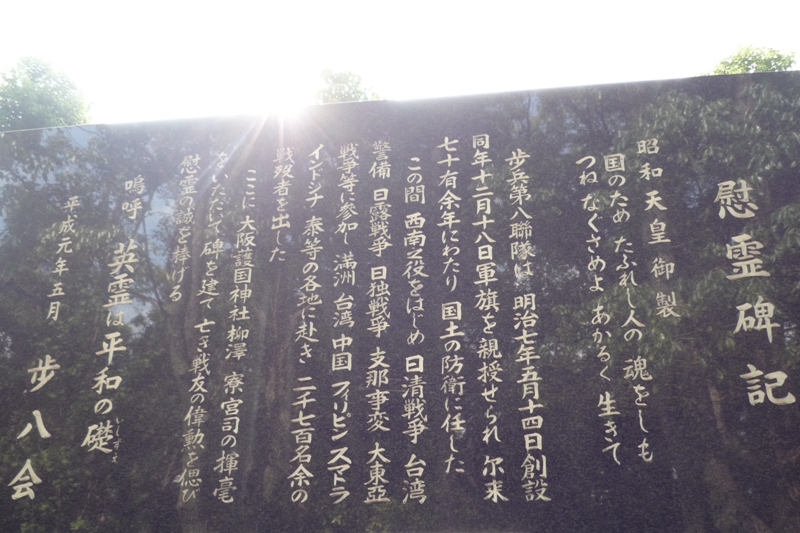 慰霊碑記
昭和天皇御製
国のため たふれし人の 魂をしも
つねなぐさめよ あかるく 生きて
歩兵第八聯隊は 明治七年五月十四日創設
同年十二月十八日軍旗を親授せられ 尔来
七十有余年にわたり 国土の防衛に任した
この間 西南之役をはじめ 日清戦争 台湾
警備 日露戦争 日独戦争 支那事変 大東亞
戦争等に参加し 満洲 台湾 中国 フィリピン スマトラ
インドシナ 泰等の各地に赴き 二千七百名余の
戦歿者を出した
ここに 大阪護国神社柳澤 寮宮司の揮毫
をいただいて碑を建て 亡き戦友の偉勲を偲び
慰霊の誠を捧げる
嗚呼 英霊は平和の礎
いしずえ
平成元年五月
歩八会